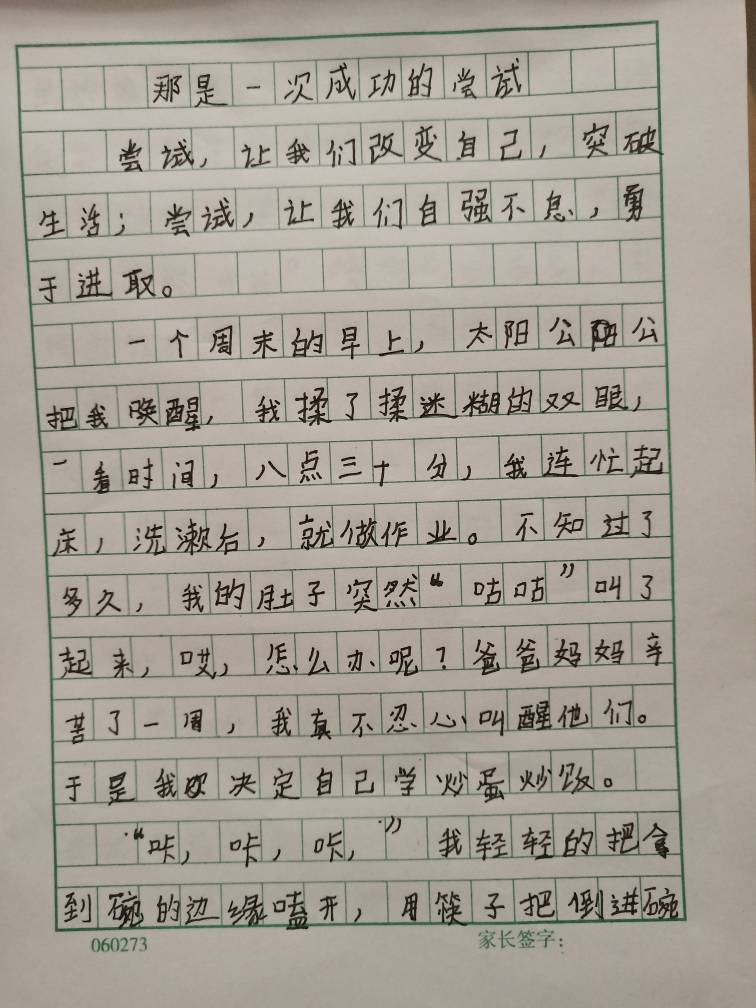 那是一次成功的尝试
尝试，让我们改变自己，突破
生活；尝试，让我们自强不息，勇
于进取。
一个周末的早上，太阳公公
把我唤醒，我揉了揉迷糊的双眼，
一看时间，八点三十分，我连忙起
床，洗漱后，就做作业。不知过了
多久，我的肚子突然“咕咕”叫了
起来，哎，怎么办呢？爸爸妈妈辛
苦了一周，我真不忍心叫醒他们。
于是我决定自己学炒蛋炒饭。
“咔，咔，咔，”我轻轻的把
到碗的边缘嗑开，用筷子把倒进碗
060273 家长签字：